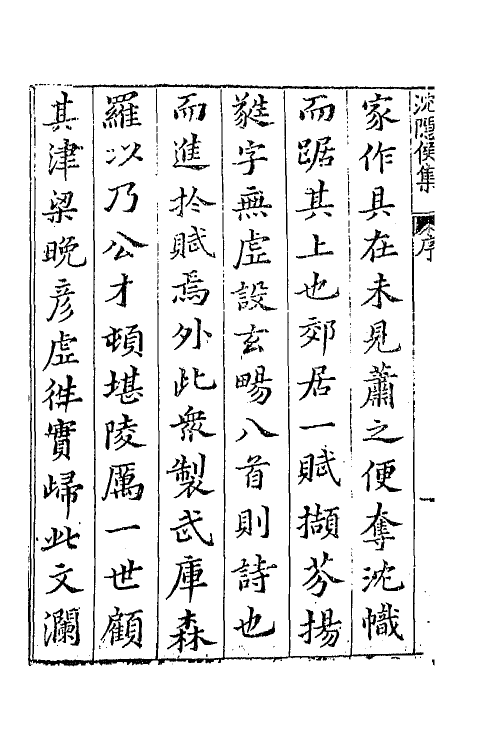 沈隱侯集 序 一
家作具在未見蕭之便奪沈幟
而踞其上也郊居一賦擷芬揚
蕤字無虛設玄暢八首則詩也
而進於賦焉外此眾製武庫森
羅以乃公才頓堪陵厲一世顧
其津梁晚彥虛徃實歸此文瀾